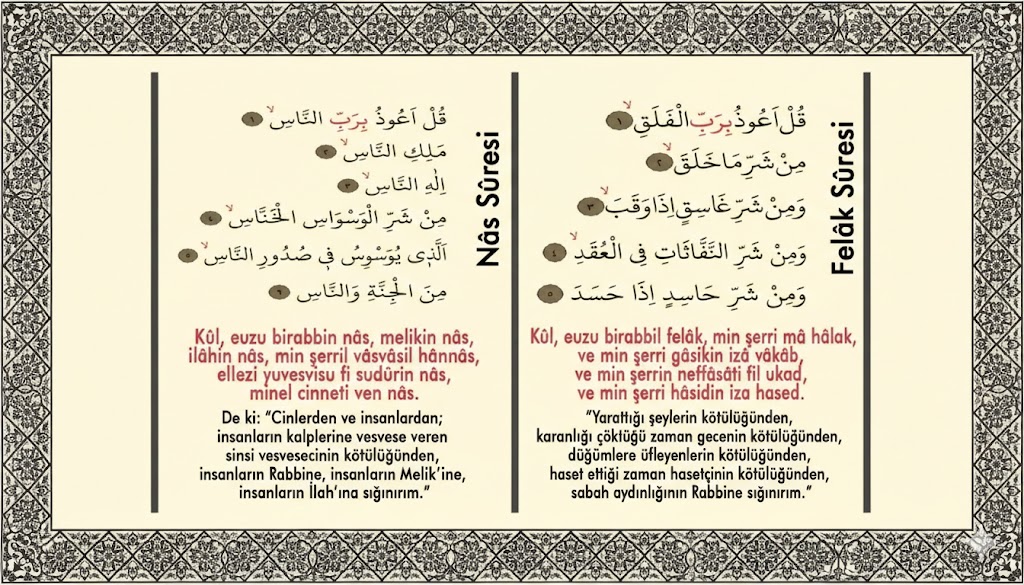 Nâs Sûresi
قُلْ اَعُوذُ بِرَبِّ النَّاسِۙ ﴿١﴾
مَلِكِ النَّاسِۙ ﴿٢﴾
اِلٰهِ النَّاسِۙ ﴿٣﴾
مِنْ شَرِّ الْوَسْوَاسِ الْخَنَّاسِۙ ﴿٤﴾
اَلَّذ۪ى يُوَسْوِسُ ف۪ى صُدُورِ النَّاسِۙ ﴿٥﴾
مِنَ الْجِنَّةِ وَالنَّاسِ ﴿٦﴾
Kûl, euzu birabbin nâs, melikin nâs,
ilâhin nâs, min şerril vâsvâsil hânnâs,
ellezi yuvesvisu fi sudûrin nâs,
minel cinneti ven nâs.
De ki: “Cinlerden ve insanlardan;
insanların kalplerine vesvese veren
sinsi vesvesecinin kötülüğünden,
insanların Rabbine, insanların Melik’ine,
insanların İlah’ına sığınırım.”
Felâk Sûresi
قُلْ اَعُوذُ بِرَبِّ الْفَلَقِۙ ﴿١﴾
مِنْ شَرِّ مَا خَلَقَۙ ﴿٢﴾
وَمِنْ شَرِّ غَاسِقٍ اِذَا وَقَبَۙ ﴿٣﴾
وَمِنْ شَرِّ النَّفَّاثَاتِ فِى الْعُقَدِۙ ﴿٤﴾
وَمِنْ شَرِّ حَاسِدٍ اِذَا حَسَدَ ﴿٥﴾
Kûl, euzu birabbil felâk, min şerri mâ hâlak,
ve min şerri gâsikin izâ vâkâb,
ve min şerrin neffâsâti fil ukad,
ve min şerri hâsidin iza hased.
“Yarattığı şeylerin kötülüğünden,
karanlığı çöktüğü zaman gecenin kötülüğünden,
düğümlere üfleyenlerin kötülüğünden,
haset ettiği zaman hasetçinin kötülüğünden,
sabah aydınlığının Rabbine sığınırım.”